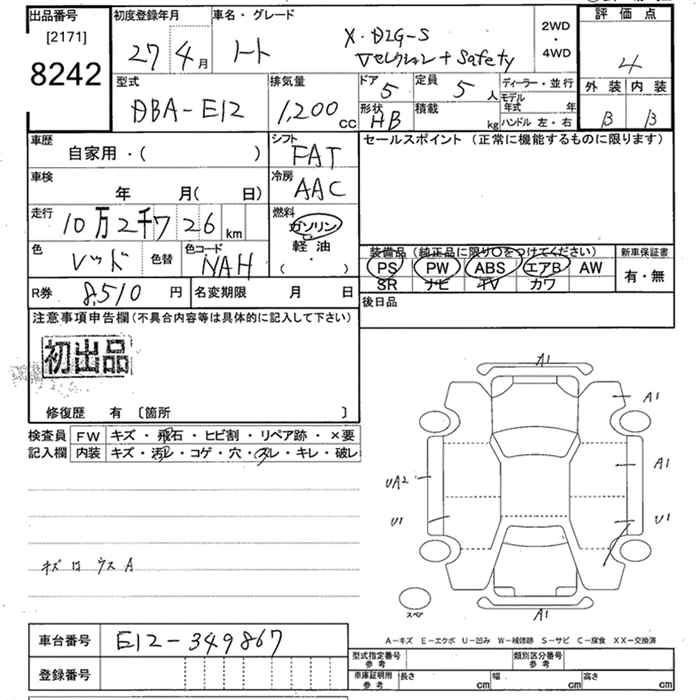 出品番号
[2171]
8242
初度登録年月
27年4月
車名・グレード
ノート
X・DIG-S
Vセレクション+Safety
2WD
・
4WD
評価点
4
外装 内装
B B
型式
DBA-E12
排気量
1,200cc
ドア
5
定員
5人
ディーラー・並行
形状
HB
積載
kg
モデル年式 年
ハンドル 左・右
車歴
自家用・( )
シフト
FAT
セールスポイント(正常に機能するものに限ります)
車検
年 月( 日)
冷房
AAC
走行
10万2千726km
燃料
ガソリン
軽油
( ・ )
色
レッド
色替
色コード
NAH
装備品(純正品に限り○をつけてください)
PS PW ABS エアB AW
SR ナビ TV カワ
新車保証書
有・無
R券 8,510円
名変期限 月 日
後日品
注意事項申告欄(不具合内容等は具体的に記入して下さい)
初出品
修復歴 有〔箇所 〕
検査員記入欄
FW キズ・飛石・ヒビ割・リペア跡・×要
内装 キズ・汚レ・コゲ・穴・スレ・キレ・破レ
キズ ロ ウス A
A1
A1
A1
UA2
U1
U1
A1
スペア
A-キズ E-エクボ U-凹み W-補修跡 S-サビ C-腐食 XX-交換済
車台番号 E12-349867
登録番号
型式指定番号参考
類別区分番号参考
車庫証明用参考
長さ cm 幅 cm 高さ cm